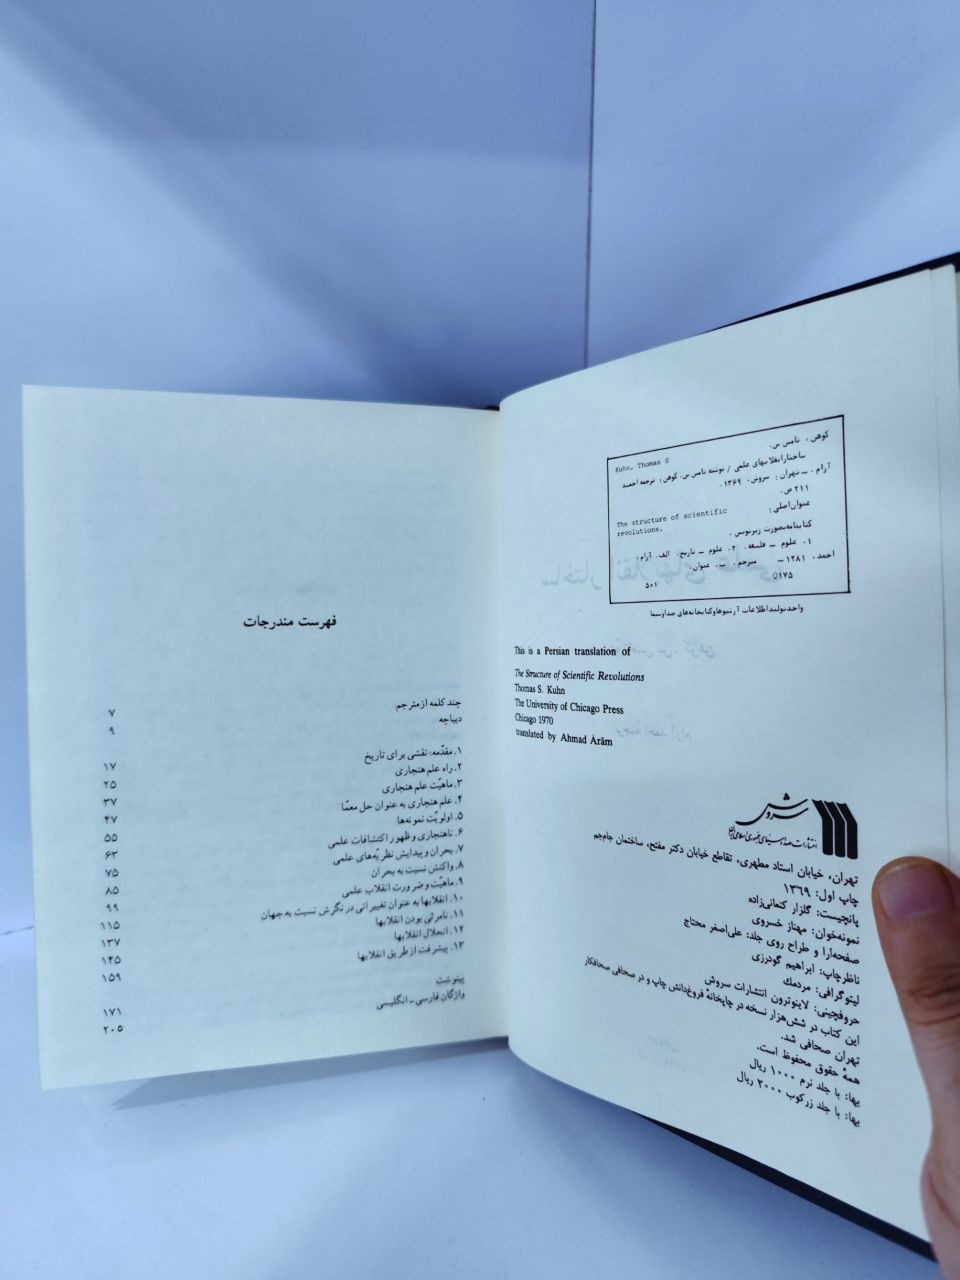 کوهن، تامس س.
Kuhn, Thomas S
ساختار انقلابهای علمی / نوشته تامس س. کوهن؛ ترجمه احمد
آرام. ــ تهران: سروش، ۱۳۶۹.
۲۱۱ ص.
عنوان اصلی:
The structure of scientific
revolutions.
کتابنامه بصورت زیرنویس.
۱. علوم ــ فلسفه. ۲. علوم ــ تاریخ. الف. آرام،
احمد، ۱۲۸۱ ــ مترجم. ب. عنوان.
۵۰۱ Q۱۷۵
واحد تولید اطلاعات آرشیوها و کتابخانه‌های صدا و سیما
This is a Persian translation of
The Structure of Scientific Revolutions
Thomas S. Kuhn
The University of Chicago Press
Chicago 1970
translated by Ahmad Ārām
سروش
انتشارات صدا و سیمای جمهوری اسلامی ایران
تهران، خیابان استاد مطهری، تقاطع خیابان دکتر مفتح، ساختمان جام‌جم
چاپ اول: ۱۳۶۹
پانچیست: گلزار کنعانی‌زاده
نمونه‌خوان: مهناز خسروی
صفحه‌آرا و طراح روی جلد: علی‌اصغر محتاج
ناظر چاپ: ابراهیم گودرزی
لیتوگرافی: مردمك
حروفچینی: لاینوترون انتشارات سروش
این کتاب در شش‌هزار نسخه در چاپخانهٔ فروغ‌دانش چاپ و در صحافی صحافکار
تهران صحافی شد.
همهٔ حقوق محفوظ است.
بها: با جلد نرم ۱۰۰۰ ریال
بها: با جلد زرکوب ۲۰۰۰ ریال
فهرست مندرجات
چند کلمه از مترجم ۷
دیباچه ۹
۱. مقدّمه: نقشی برای تاریخ ۱۷
۲. راه علم هنجاری ۲۵
۳. ماهیّت علم هنجاری ۳۷
۴. علم هنجاری به عنوان حل معمّا ۴۷
۵. اولویّت نمونه‌ها ۵۵
۶. ناهنجاری و ظهور اکتشافات علمی ۶۳
۷. بحران و پیدایش نظریّه‌های علمی ۷۵
۸. واکنش نسبت به بحران ۸۵
۹. ماهیّت و ضرورت انقلاب علمی ۹۹
۱۰. انقلابها به عنوان تغییراتی در نگرش نسبت به جهان ۱۱۵
۱۱. نامرئی بودن انقلابها ۱۳۷
۱۲. انحلال انقلابها ۱۴۵
۱۳. پیشرفت از طریق انقلابها ۱۵۹
پینوشت ۱۷۱
واژگان فارسی ـ انگلیسی ۲۰۵